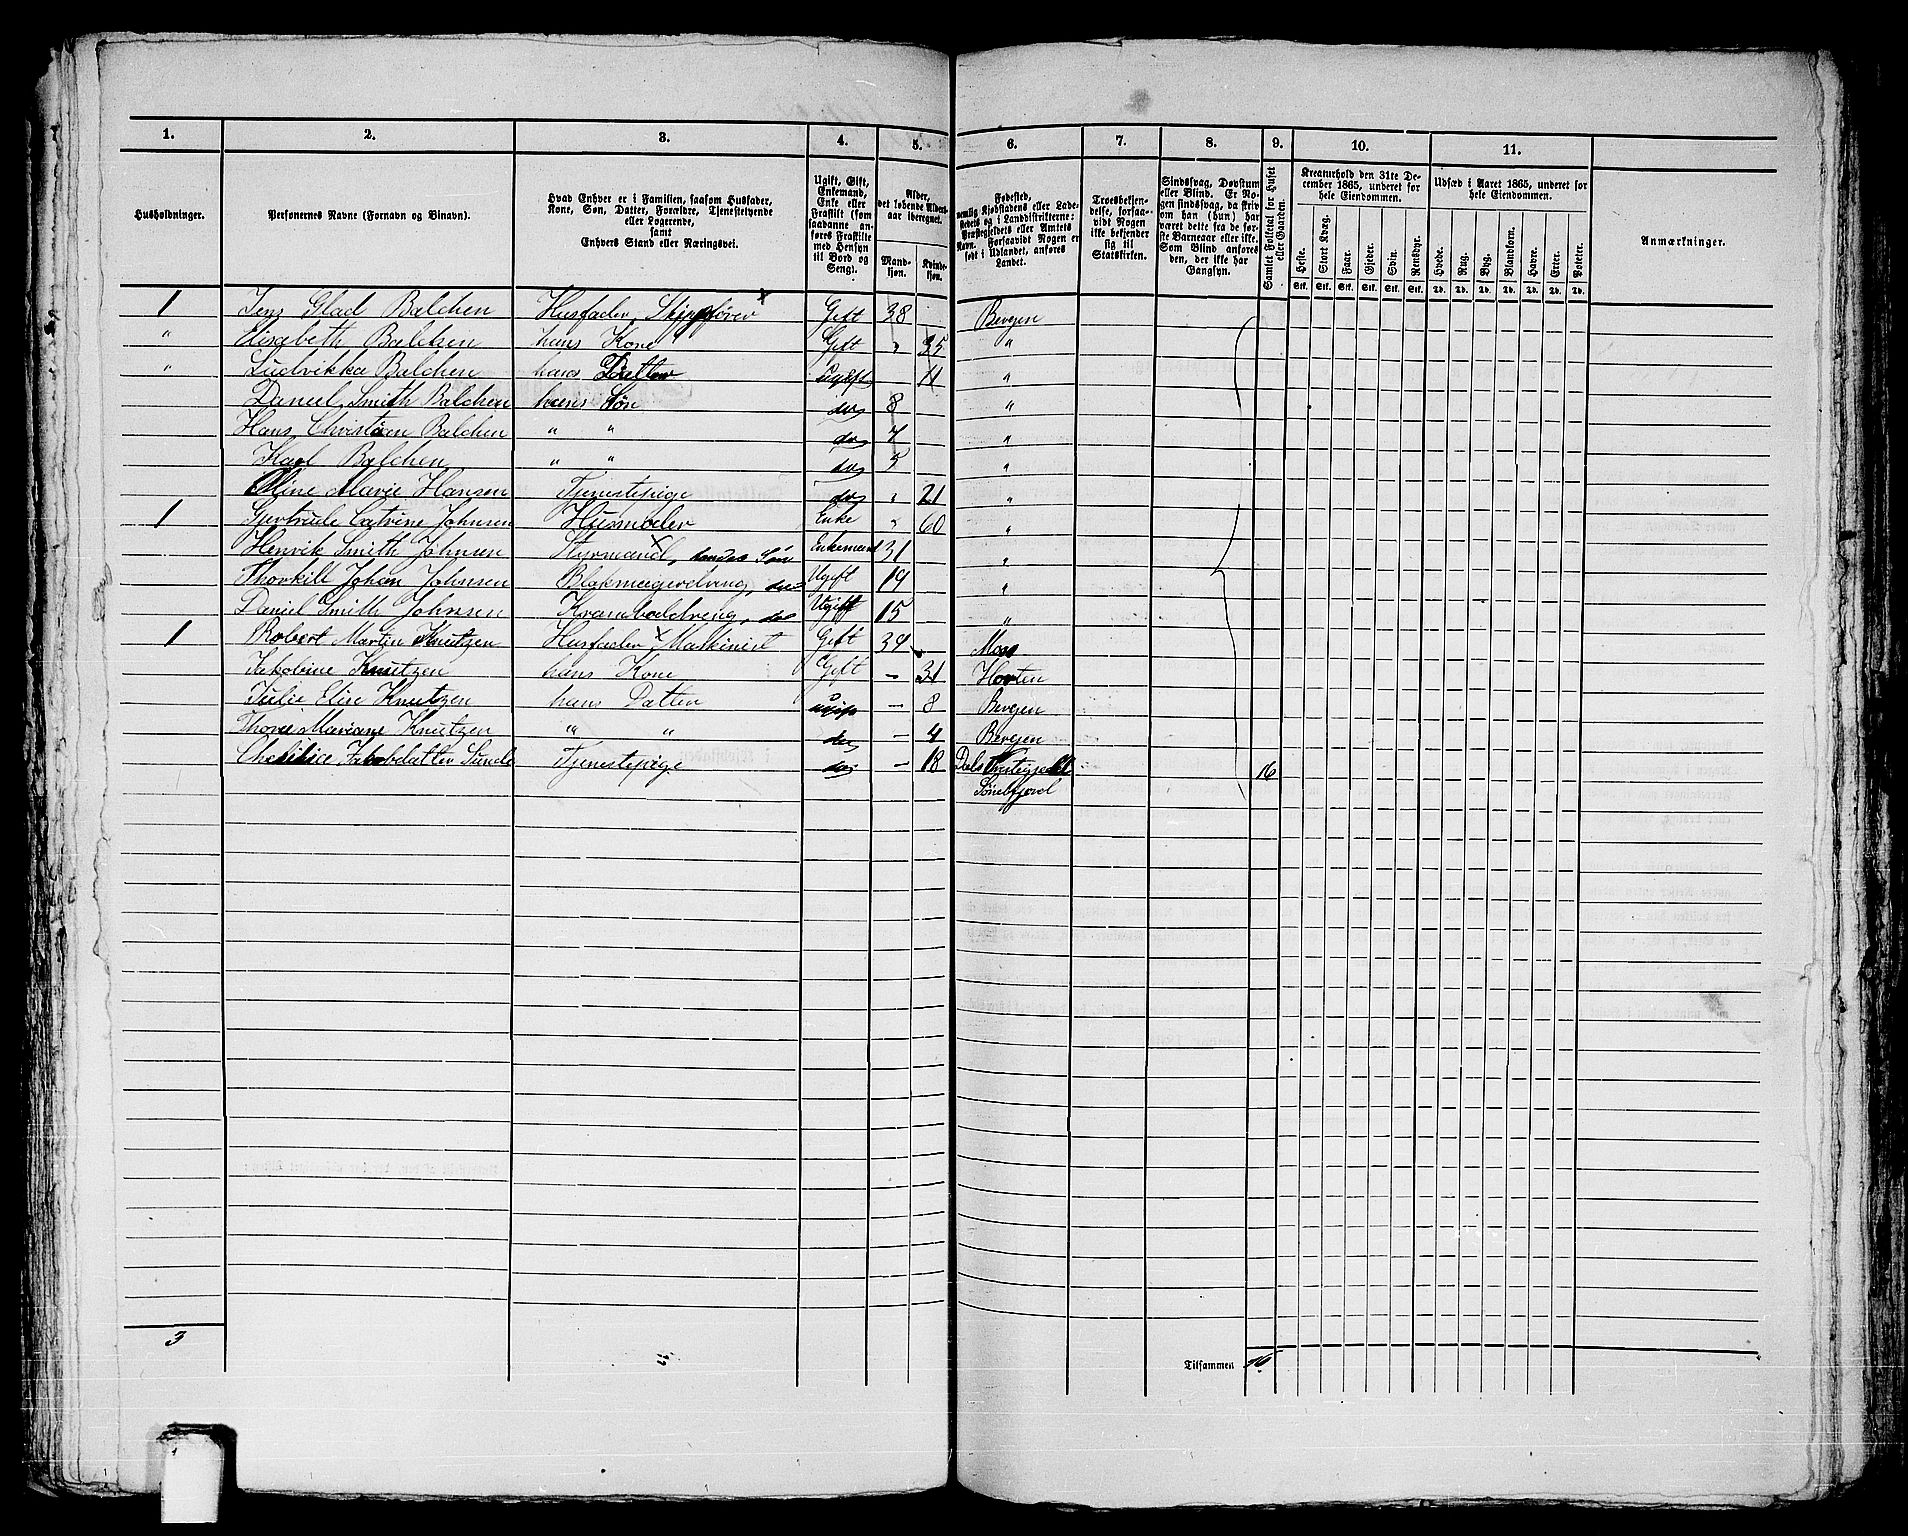 1. 2. 3. 4. 5. 6. 7. 8. 9. 10. 11.
Husholdninger.
Personernes Navne (Fornavn og Binavn).
Hvad Enhver er i Familien, saasom Husfader,
Kone, Søn, Datter, Forældre, Tjenestetyende
eller Logerende,
samt
Enhvers Stand eller Næringsvei.
Ugift, Gift,
Enkemand,
Enke eller
Fraskilt (som
saadanne an-
føres Fraskilte
med Hensyn
til Bord og
Seng).
Alder,
det løbende Alders-
aar iberegnet.
Mand-
kjøn.
Kvinde-
kjøn.
Fødested,
nemlig Kjøbstadens eller Lade-
stedets og i Landdistrikterne:
Præstegjeldets eller Amtets
Navn. Forsaavidt Nogen er
født i Udlandet, anføres
Landet.
Troesbekjen-
delse, forsaa-
vidt Nogen
ikke bekjender
sig til
Statskirken.
Sindssvag, Døvstum
eller Blind. Er No-
gen sindssvag, da skriv
om han (hun) har
været dette fra de før-
ste Barneaar eller ikke.
Som Blind anføres
den, der ikke har
Gangsyn.
Samlet Folketal for Huset
eller Gaarden.
Kreaturhold den 31te De-
cember 1865, underet for
hele Eiendommen.
Heste. Stort Kvæg. Faar. Gjeder. Svin. Rensdyr.
Stk. Stk. Stk. Stk. Stk. Stk.
Udsæd i Aaret 1865, underet for
hele Eiendommen.
Hvede. Rug. Byg. Blandkorn. Havre. Erter. Poteter.
Td. Td. Td. Td. Td. Td. Td.
Anmærkninger.
1 Jens Glad Balchen Husfader, Skipsfører Gift 38 Bergen
" Elisabeth Balchen hans Kone Gift " 35 "
" Ludvikka Balchen hans Datter ugift 11 "
Daniel Smith Balchen hans Søn do 8 "
Hans Christian Balchen " " do 7 "
Karl Balchen " " do 5 "
Oline Marie Hansen Tjenestepige do " 21 "
1 Gjertrude Catrine Johnsen Husmoder Enke " 60 "
Henrik Smith Johnsen Styrmand, hendes Søn Enkemand 31 "
Thorkill Johan Johnsen Blokmagerdreng, do Ugift 19 "
Daniel Smith Johnsen Kramboddreng, do Ugift 15 "
1 Robert Martin Knutzen Husfader, Maskinist Gift 34 Moss
Jakobine Knutzen hans Kone Gift – 31 Horten
Julie Elise Knutzen hans Datter ugift – 8 Bergen
Thora Mariane Knutzen " " do – 4 Bergen
Jakobdatter Sunde Tjenestepige do – 18 Dals Præstegjeld 16
Søndfjord
3
Tilsammen 16